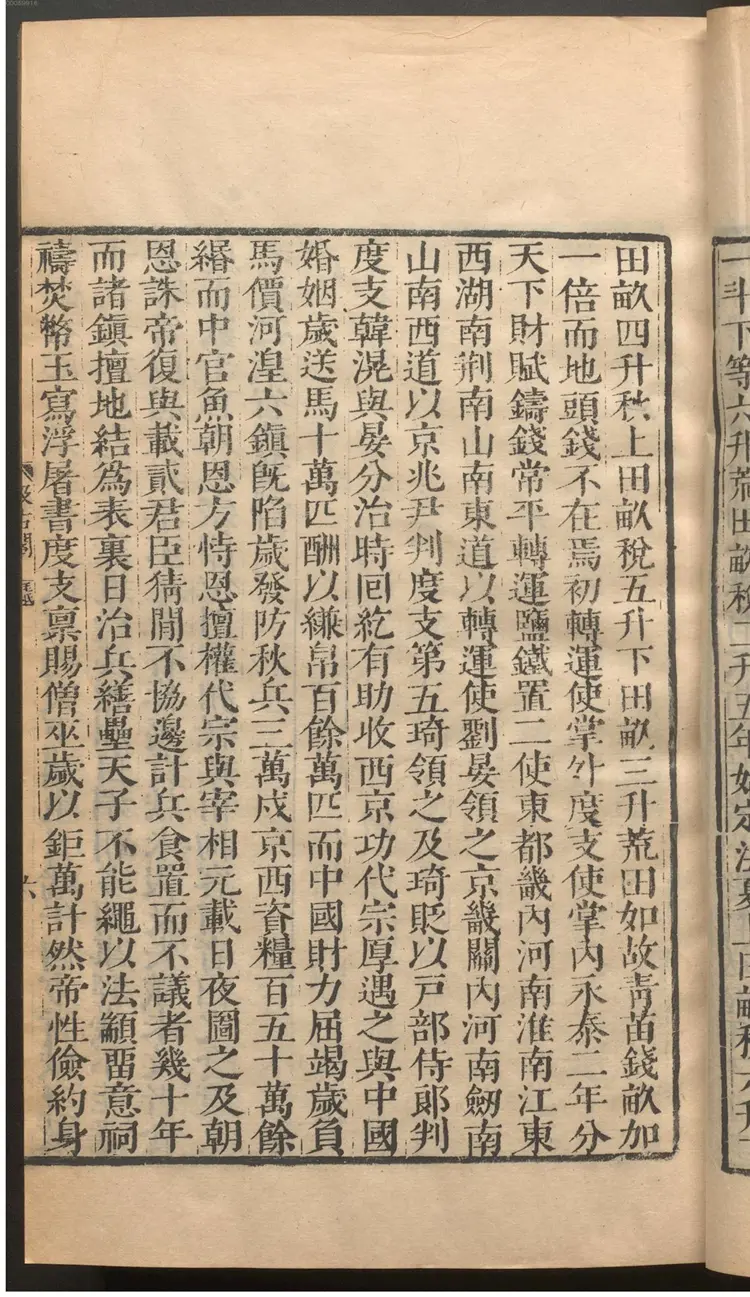 一斗下等六升荒田畝稅二升五年始定法夏上田畝稅六升下
田畝四升秋上田畝稅五升下田畝三升荒田如故青苗錢畝加
一倍而地頭錢不在焉初轉運使掌外度支使掌內永泰二年分
天下財賦鑄錢常平轉運鹽鐵置二使東都畿內河南淮南江東
西湖南荆南山南東道以轉運使劉晏領之京畿關內河南劒南
山南西道以京兆尹判度支第五琦領之及琦貶以戸部侍郞判
度支韓滉與晏分治時回紇有助收西京功代宗厚遇之與中國
婚姻歲送馬十萬匹酬以縑帛百餘萬匹而中國財力屈竭歲負
馬價河湟六鎮旣陷歲發防秋兵三萬戍京西資糧百五十萬餘
緡而中官魚朝恩方恃恩擅權代宗與宰相元載日夜圖之及朝
恩誅帝復與載貳君臣猜閒不協邊計兵食置而不議者幾十年
而諸鎮擅地結爲表裏日治兵繕壘天子不能繩以法顓畱意祠
禱焚幣玉寫浮屠書度支稟賜僧巫歲以鉅萬計然帝性儉約身
汲古閣
六